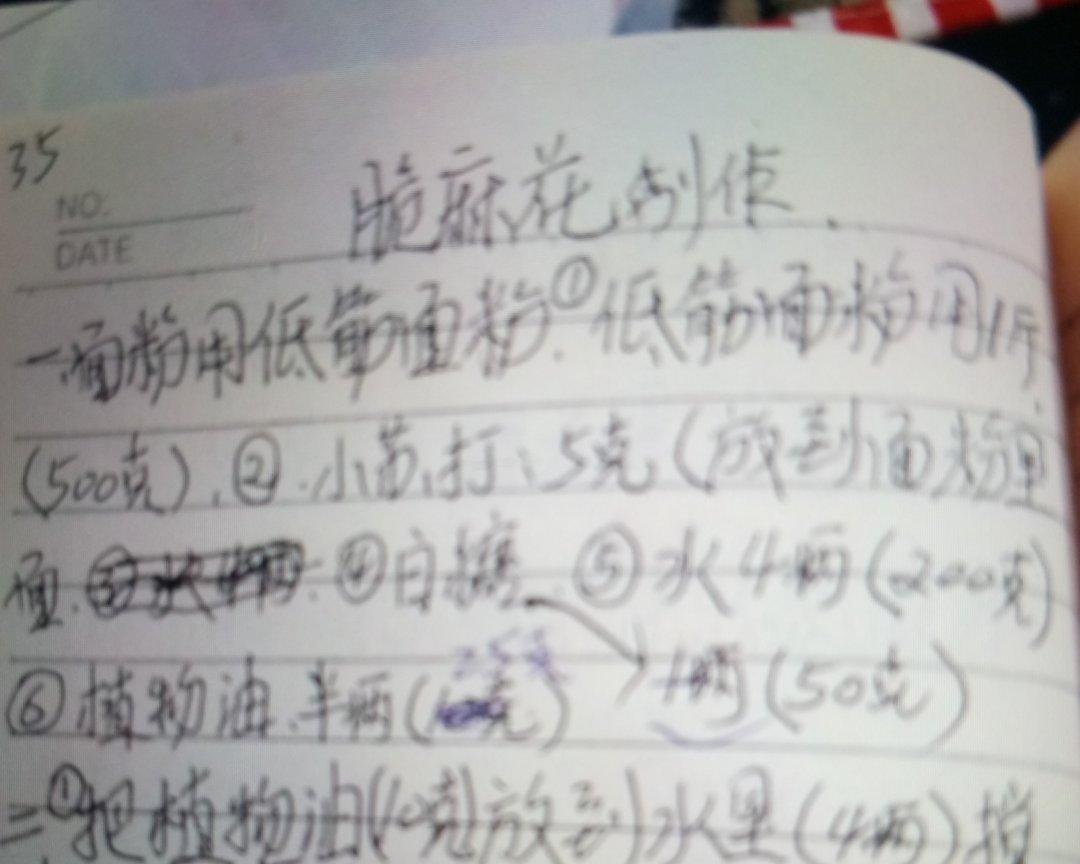 35
NO.
DATE
脆麻花制作.
一.面粉用低筋面粉.①低筋面粉用1斤
(500克).②.小苏打、5克(放到面粉里
面. ④白糖 ⑤水4两(200克)
25克
⑥植物油.半两( 克) 1两(50克)
二.①把植物油(10克)放到水里(4两)搅